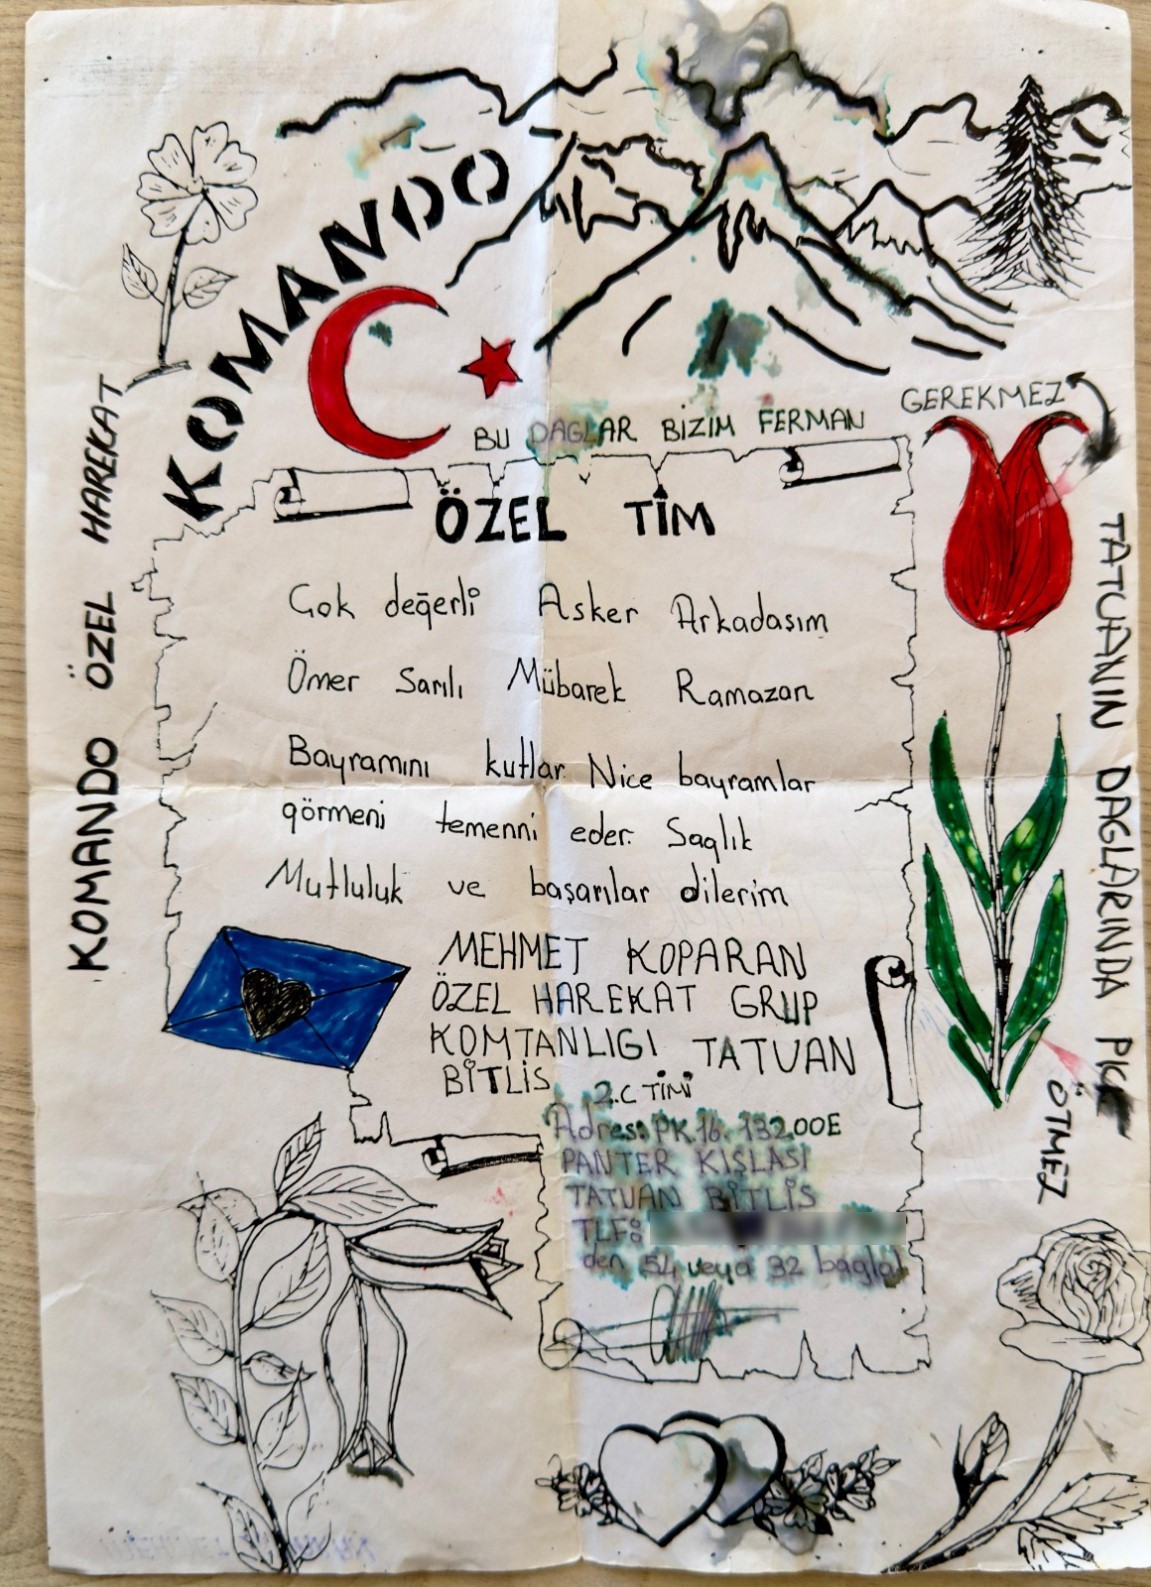 KOMANDO
BU DAGLAR BİZİM FERMAN GEREKMEZ
ÖZEL TİM
Çok değerli Asker Arkadaşım
Ömer Sarılı Mübarek Ramazan
Bayramını kutlar Nice bayramlar
görmeni temenni eder. Saglık
Mutluluk ve başarılar dilerim
MEHMET KOPARAN
ÖZEL HAREKAT GRUP
KOMTANLIGI TATUAN
BİTLİS 2.C TİMİ
Adres: PK.16. 13200E
PANTER KIŞLASI
TATUAN BİTLİS
TLF:
den 54 veya 32 bagla
KOMANDO ÖZEL HAREKAT
TATUANIN DAGLARINDA PKK
ÖTMEZ